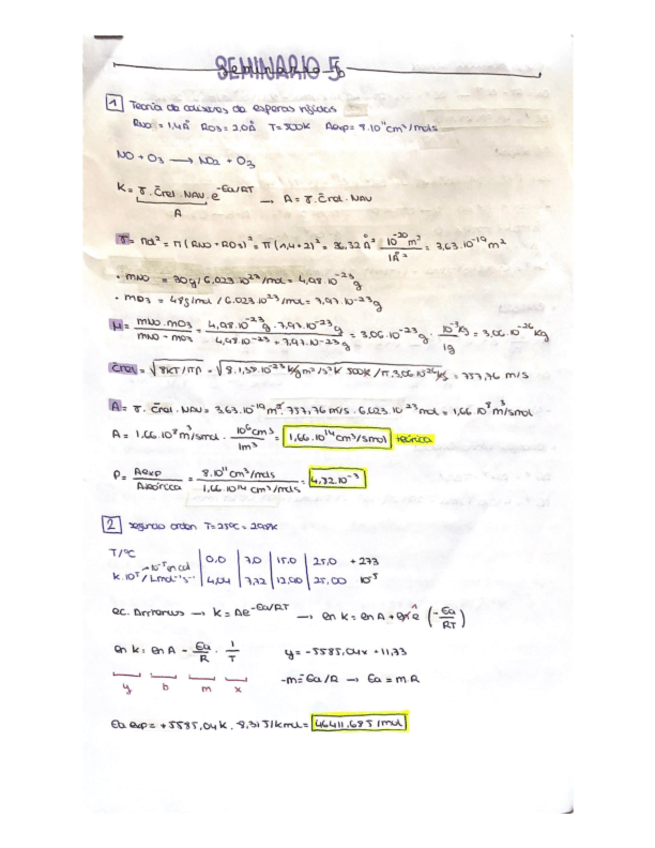 SEMINARIO 5
1 Teoría de colisiones de esferas rígidas
RNO = 1,4Å RO3 = 2,0Å T=500K Aexp = 9.10¹¹cm³/mols
NO + O₃ → NO₂ + O₃
K = σ.C̄rel.NAV.e^-Ea/RT → A = σ.C̄rel.NAV
A
σ = πd² = π(RNO+RO3)² = π(1,4+2)² = 36,32 Å² 10⁻²⁰m²/1Å² = 3,63.10⁻¹⁹m²
· mNO = 30g/6,023.10²³/mol = 4,98.10⁻²³g
· mO3 = 48g/mol / 6.023.10²³/mol = 7,97.10⁻²³g
μ = mNO.mO3/mNO+mO3 = 4,98.10⁻²³g.7,97.10⁻²³g/4,98.10⁻²³+7,97.10⁻²³g = 3,06.10⁻²³g . 10⁻³Kg/1g = 3,06.10⁻²⁶Kg
C̄rel = √8KT/πμ = √8.1,39.10⁻²³Kgm²/s²K 500K/π.3,06.10⁻²⁶Kg = 757,76 m/s
A = σ.C̄rel.NAV = 3,63.10⁻¹⁹m².757,76m/s.6,023.10²³mol = 1,66.10⁸m³/smol
A = 1,66.10⁸m³/smol . 10⁶cm³/1m³ = 1,66.10¹⁴cm³/smol teórica
P = Aexp/Ateórica = 8.10¹¹cm³/mols/1,66.10¹⁴cm³/mols = 4,82.10⁻³
2 segundo orden T=25ºC = 298K
T/ºC 0,0 7,0 15,0 25,0 +273
K.10⁵/Lmol⁻¹s⁻¹ 4,04 7,72 12,00 25,00 10⁵
ec. Arrhenius → K = Ae^-Ea/RT → ln K = ln A + ln e (-Ea/RT)
ln K = ln A - Ea/R . 1/T y = -5585,04x + 11,73
y b m x -m = Ea/R → Ea = m.R
Ea exp = +5585,04K . 8,31J/Kmol = 46411,68J/mol